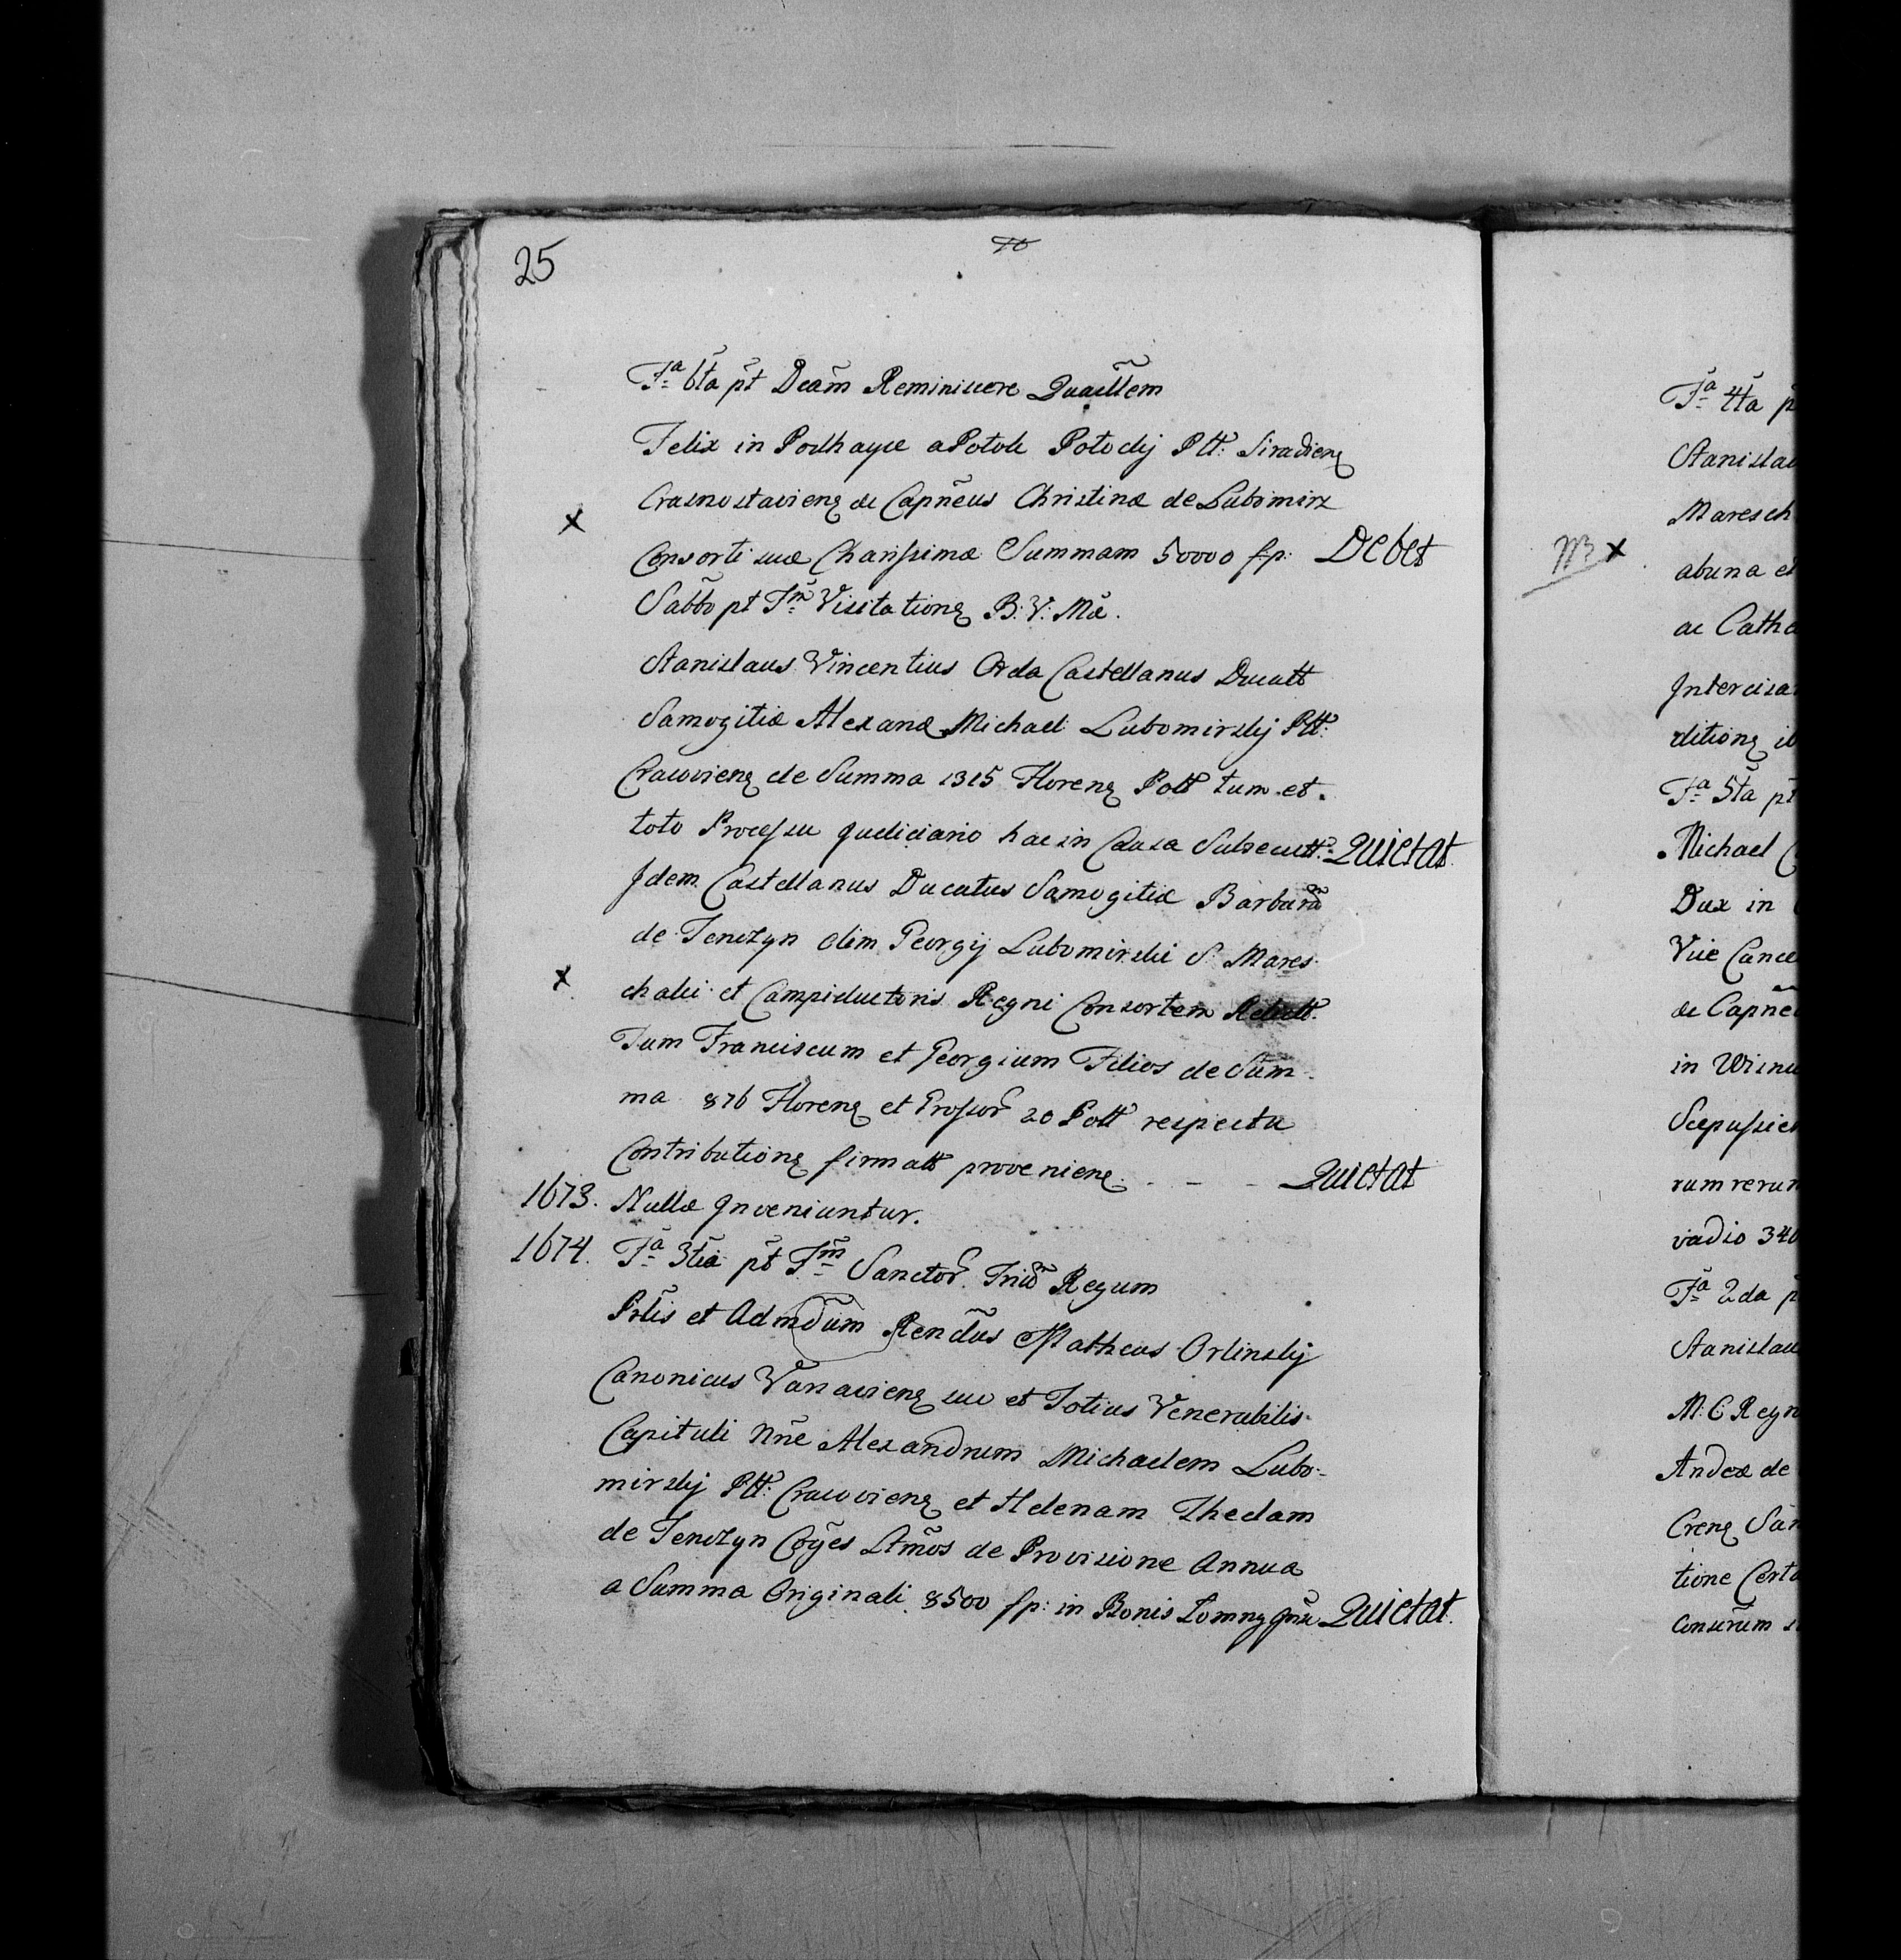 25
Fa 6ta pt Dcam Reminiscere Quadllem
Felix in Podhayce a Potok Potockij Pltt: Siradiens
Crasnostaviens &c Capneus Christinæ de Lubomirz
x Consorti suæ Charissimæ Summam 50000 fp: Debet
Sabbo pt Fm Visitationis B: V: Mæ.
Stanislaus Vincentius Orda Castellanus Ducatt
Samogitiæ Alexand Michaeli Lubomirskij Pltt:
Cracoviens de Summa 1315 Florens Poll tum et
toto Processu Judiciario hac in Causa Subsecutt: Quietat.
Idem Castellanus Ducatus Samogitiæ Barbaram
de Tenczyn olim Georgij Lubomirskii S. Mares
x chalci et Campiductoris Regni Consortem Relictt.
Tum Franciscum et Georgium Filios de Sum
ma 876 Florens et Grossor 20 Poll respectu
Contributionis firmatt proveniens. - - - Quietat
1673. Nullæ Inveniuntur.
1674. Fa 3tia pt Fm Sanctor Trium Regum
Prlis et Admdum Rendus Matheus Orlinskij
Canonicus Varsaviens suo et Totius Venerabilis
Capituli Nne Alexandrum Michaelem Lubo-
mirskij Pltt: Cracoviens et Helenam Theclam
de Tenczyn Cojes Ltmos de Provisione Annua
a Summa Originali 8500 fp: in Bonis Lomny Quietat.
Fa 4ta p
Stanislau
Maresch
NB x abuna et
ac Catha
Intercisa
ditions
Fa 5ta pt
Michael
Dux in
Vice Cance
&c Capne
in Wisnic
Scepusien
rum rerum
vadio 340
Fa 2da p
Stanislau
M: C Regn
Andeæ de
Crens San
tione Certa